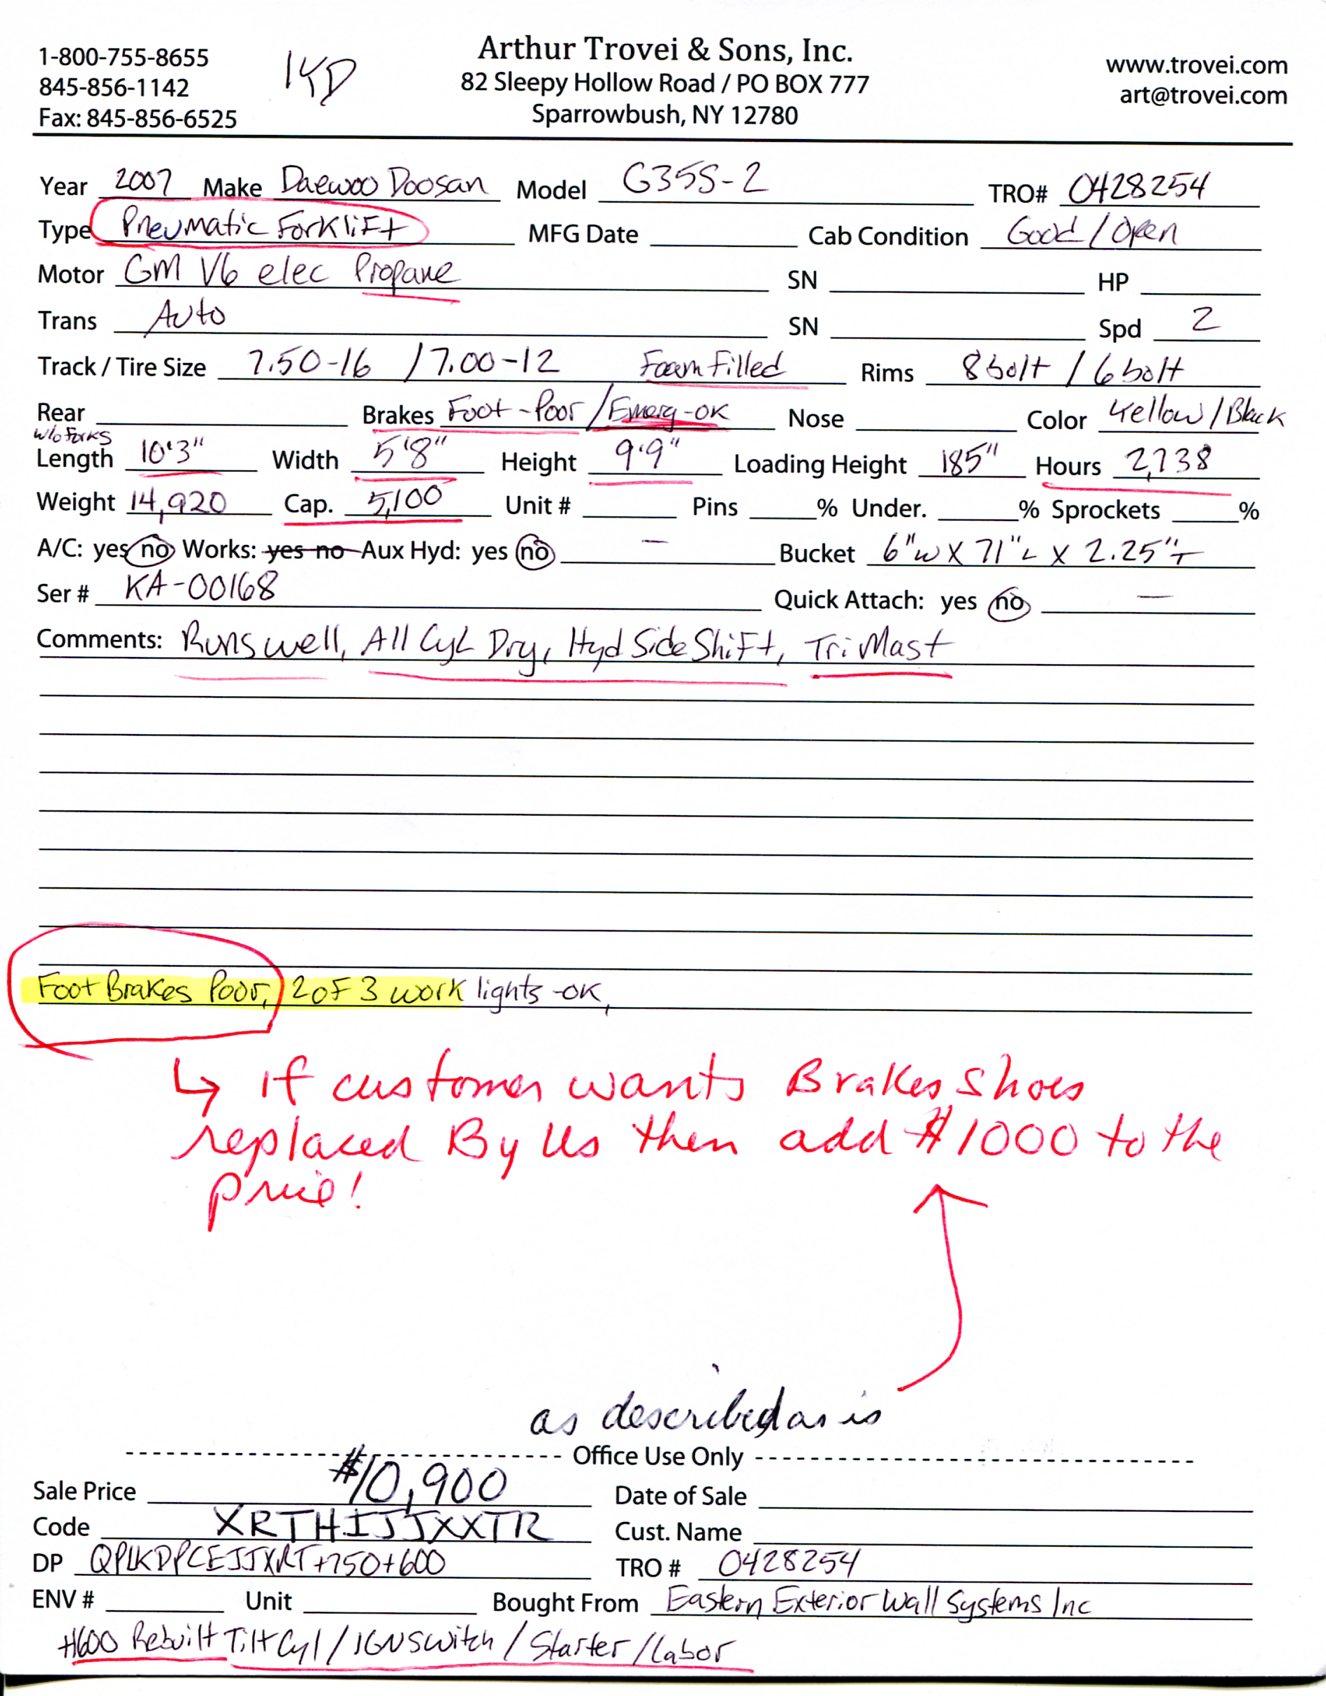 1-800-755-8655
845-856-1142
Fax: 845-856-6525
Arthur Trovei & Sons, Inc.
82 Sleepy Hollow Road / PO BOX 777
Sparrowbush, NY 12780
www.trovei.com
art@trovei.com
Year 2007 Make Daewoo Doosan Model G35S-2 TRO# 0428254
Type Pneumatic Forklift MFG Date Cab Condition Good / Open
Motor GM V6 elec Propane SN HP
Trans Auto SN Spd 2
Track / Tire Size 7.50-16 / 7.00-12 Foam Filled Rims 8 bolt / 6 bolt
Rear Brakes Foot-Poor / Emerg-OK Nose Color Yellow/Black
w/o Forks
Length 10'3" Width 5'8" Height 9'9" Loading Height 185" Hours 2,738
Weight 14,920 Cap. 5,100 Unit # Pins % Under. % Sprockets %
A/C: yes no Works: yes no Aux Hyd: yes no — Bucket 6"W X 71"L X 2.25"T
Ser # KA-00168 Quick Attach: yes no —
Comments: Runs well, All Cyl Dry, Hyd Side Shift, Tri Mast
Foot Brakes Poor, 2 of 3 work lights -OK,
↳ If customer wants Brakes Shoes
replaced By Us then add $1000 to the
price!
as described as is
Office Use Only
Sale Price $10,900 Date of Sale
Code XRTHIJJXXTR Cust. Name
DP QPLKDPCEJJXRT+750+600 TRO # 0428254
ENV # Unit Bought From Eastern Exterior Wall Systems Inc
+1600 Rebuilt Tilt Cyl / IGN Switch / Starter / Labor